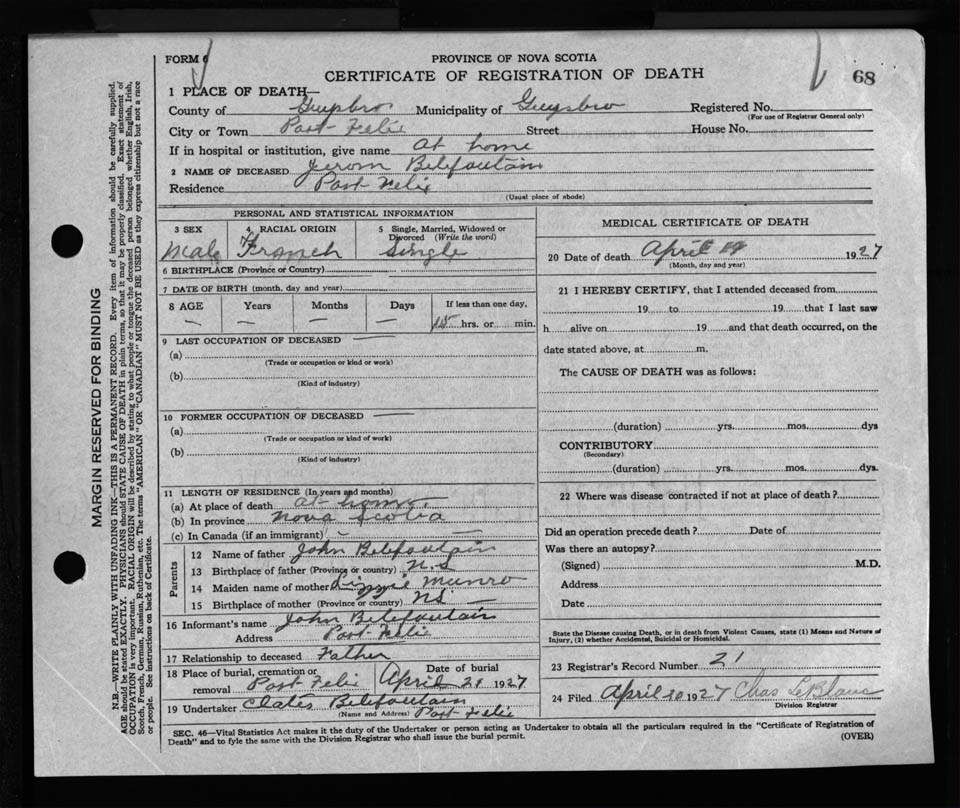 FORM 6
PROVINCE OF NOVA SCOTIA
CERTIFICATE OF REGISTRATION OF DEATH
68
1 PLACE OF DEATH—
County of Guysbro Municipality of Guysbro Registered No.
(For use of Registrar General only)
City or Town Port Felix Street House No.
If in hospital or institution, give name at home
2 NAME OF DECEASED Jerom Belefoutain
Residence Port Felix
(Usual place of abode)
PERSONAL AND STATISTICAL INFORMATION
3 SEX Male
4 RACIAL ORIGIN French
5 Single, Married, Widowed or Divorced (Write the word) Single
6 BIRTHPLACE (Province or Country) —
7 DATE OF BIRTH (month, day and year) —
8 AGE Years Months Days If less than one day,
— — — 15 hrs. or min.
9 LAST OCCUPATION OF DECEASED —
(a)
(Trade or occupation or kind or work)
(b)
(Kind of industry)
10 FORMER OCCUPATION OF DECEASED —
(a)
(Trade or occupation or kind of work)
(b)
(Kind of industry)
11 LENGTH OF RESIDENCE (In years and months)
(a) At place of death at home
(b) In province Nova Scotia
(c) In Canada (if an immigrant) — —
Parents
12 Name of father John Belefoutain
13 Birthplace of father (Province or country) N.S
14 Maiden name of mother Lizzie Munro
15 Birthplace of mother (Province or country) NS —
16 Informant's name John Belefoutain
Address Port Felix
17 Relationship to deceased Father
18 Place of burial, cremation or removal Port Felix
Date of burial April 21 1927
19 Undertaker Belefoutain
(Name and Address) Port Felix
MEDICAL CERTIFICATE OF DEATH
20 Date of death April 19 1927
(Month, day and year)
21 I HEREBY CERTIFY, that I attended deceased from
19 to 19 that I last saw
h alive on 19 and that death occurred, on the
date stated above, at m.
The CAUSE OF DEATH was as follows:
(duration) yrs. mos. dys
CONTRIBUTORY
(Secondary)
(duration) yrs. mos. dys.
22 Where was disease contracted if not at place of death?
Did an operation precede death? Date of
Was there an autopsy?
(Signed) M.D.
Address
Date
State the Disease causing Death, or in death from Violent Causes, state (1) Means and Nature of
Injury, (2) whether Accidental, Suicidal or Homicidal.
23 Registrar's Record Number 21
24 Filed April 20 1927 Chas LeBlanc
Division Registrar
SEC. 46—Vital Statistics Act makes it the duty of the Undertaker or person acting as Undertaker to obtain all the particulars required in the "Certificate of Registration of
Death" and to fyle the same with the Division Registrar who shall issue the burial permit.
(OVER)
MARGIN RESERVED FOR BINDING
N.B.—WRITE PLAINLY WITH UNFADING INK—THIS IS A PERMANENT RECORD. Every item of information should be carefully supplied.
AGE should be stated EXACTLY. PHYSICIANS should STATE CAUSE OF DEATH in plain terms, so that it may be properly classified. Exact statement of
OCCUPATION is very important. RACIAL ORIGIN will be described by stating to what people or tongue the deceased person belonged whether English, Irish,
Scotch, French, German, Russian, Ruthenian, etc. The terms "AMERICAN" OR "CANADIAN" MUST NOT BE USED as they express citizenship but not a race
or people. See instructions on back of Certificate.